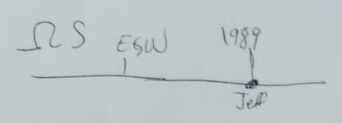 ΩS ESW 1989
Jeff